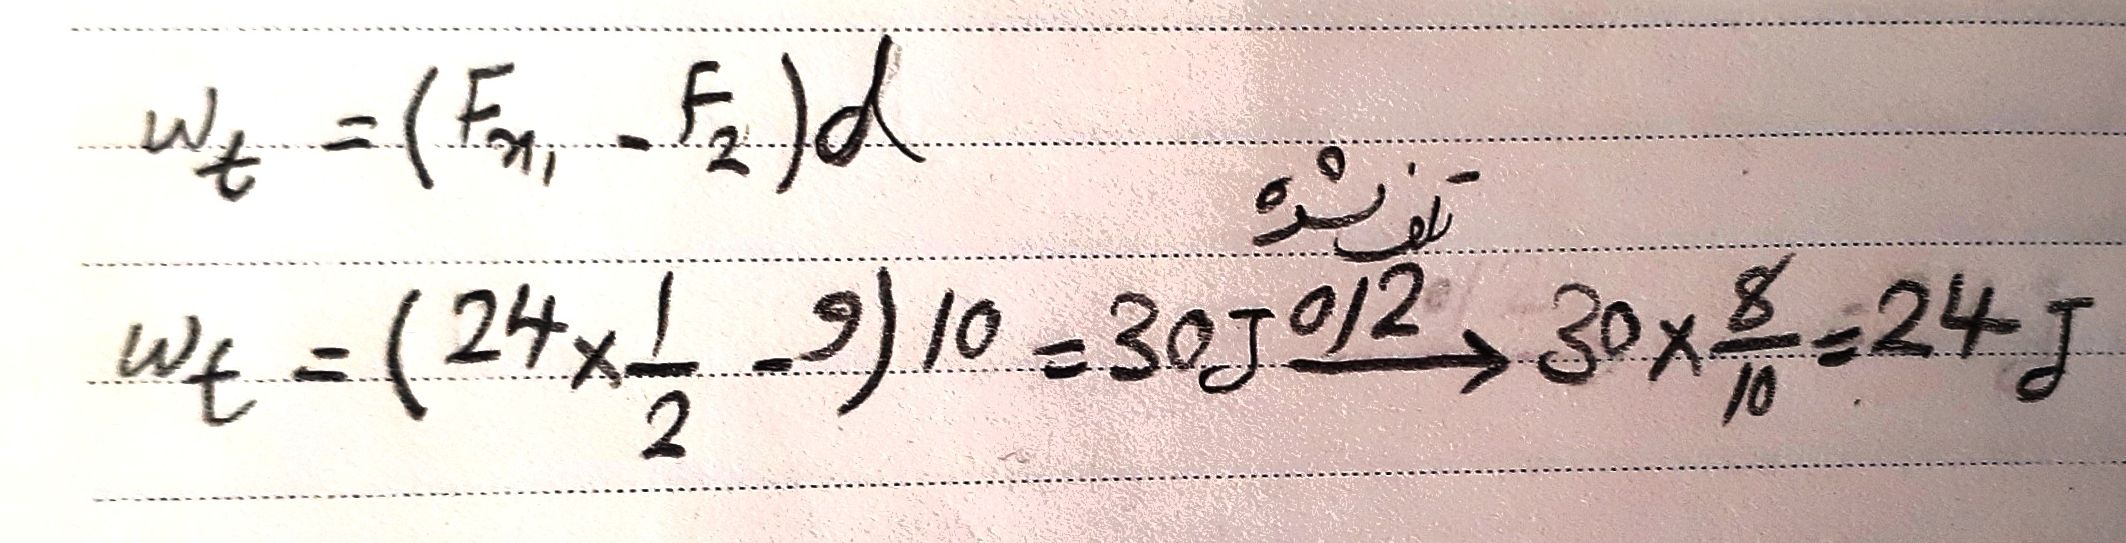 W_t = (F_x₁ - F_2)d
تلف شده
W_t = (24 × 1/2 - 9) 10 = 30J 0/2 → 30 × 8/10 = 24 J